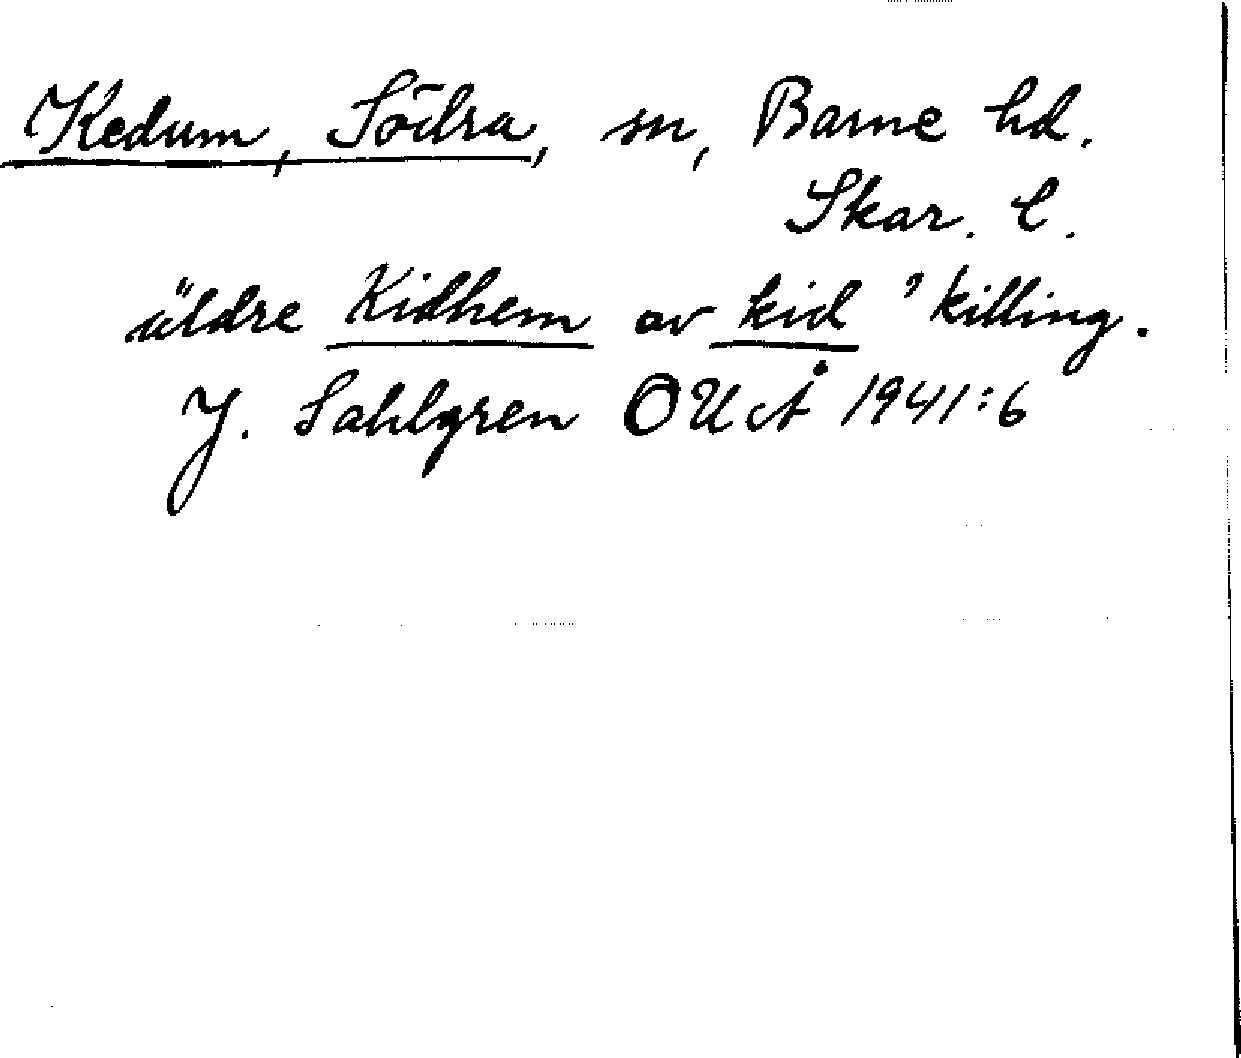 Kedum, Södra, sn, Barne hd.
Skar. l.
äldre Kidhem av kid 'killing.
J. Sahlgren OUÅ 1941:6